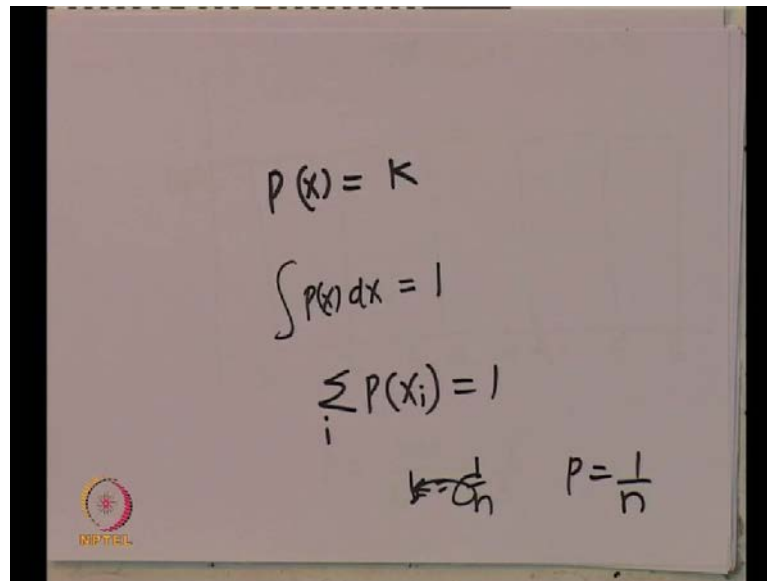 P(x) = K
∫ P(x) dx = 1
∑ P(xi) = 1
i
P = 1/n
NPTEL